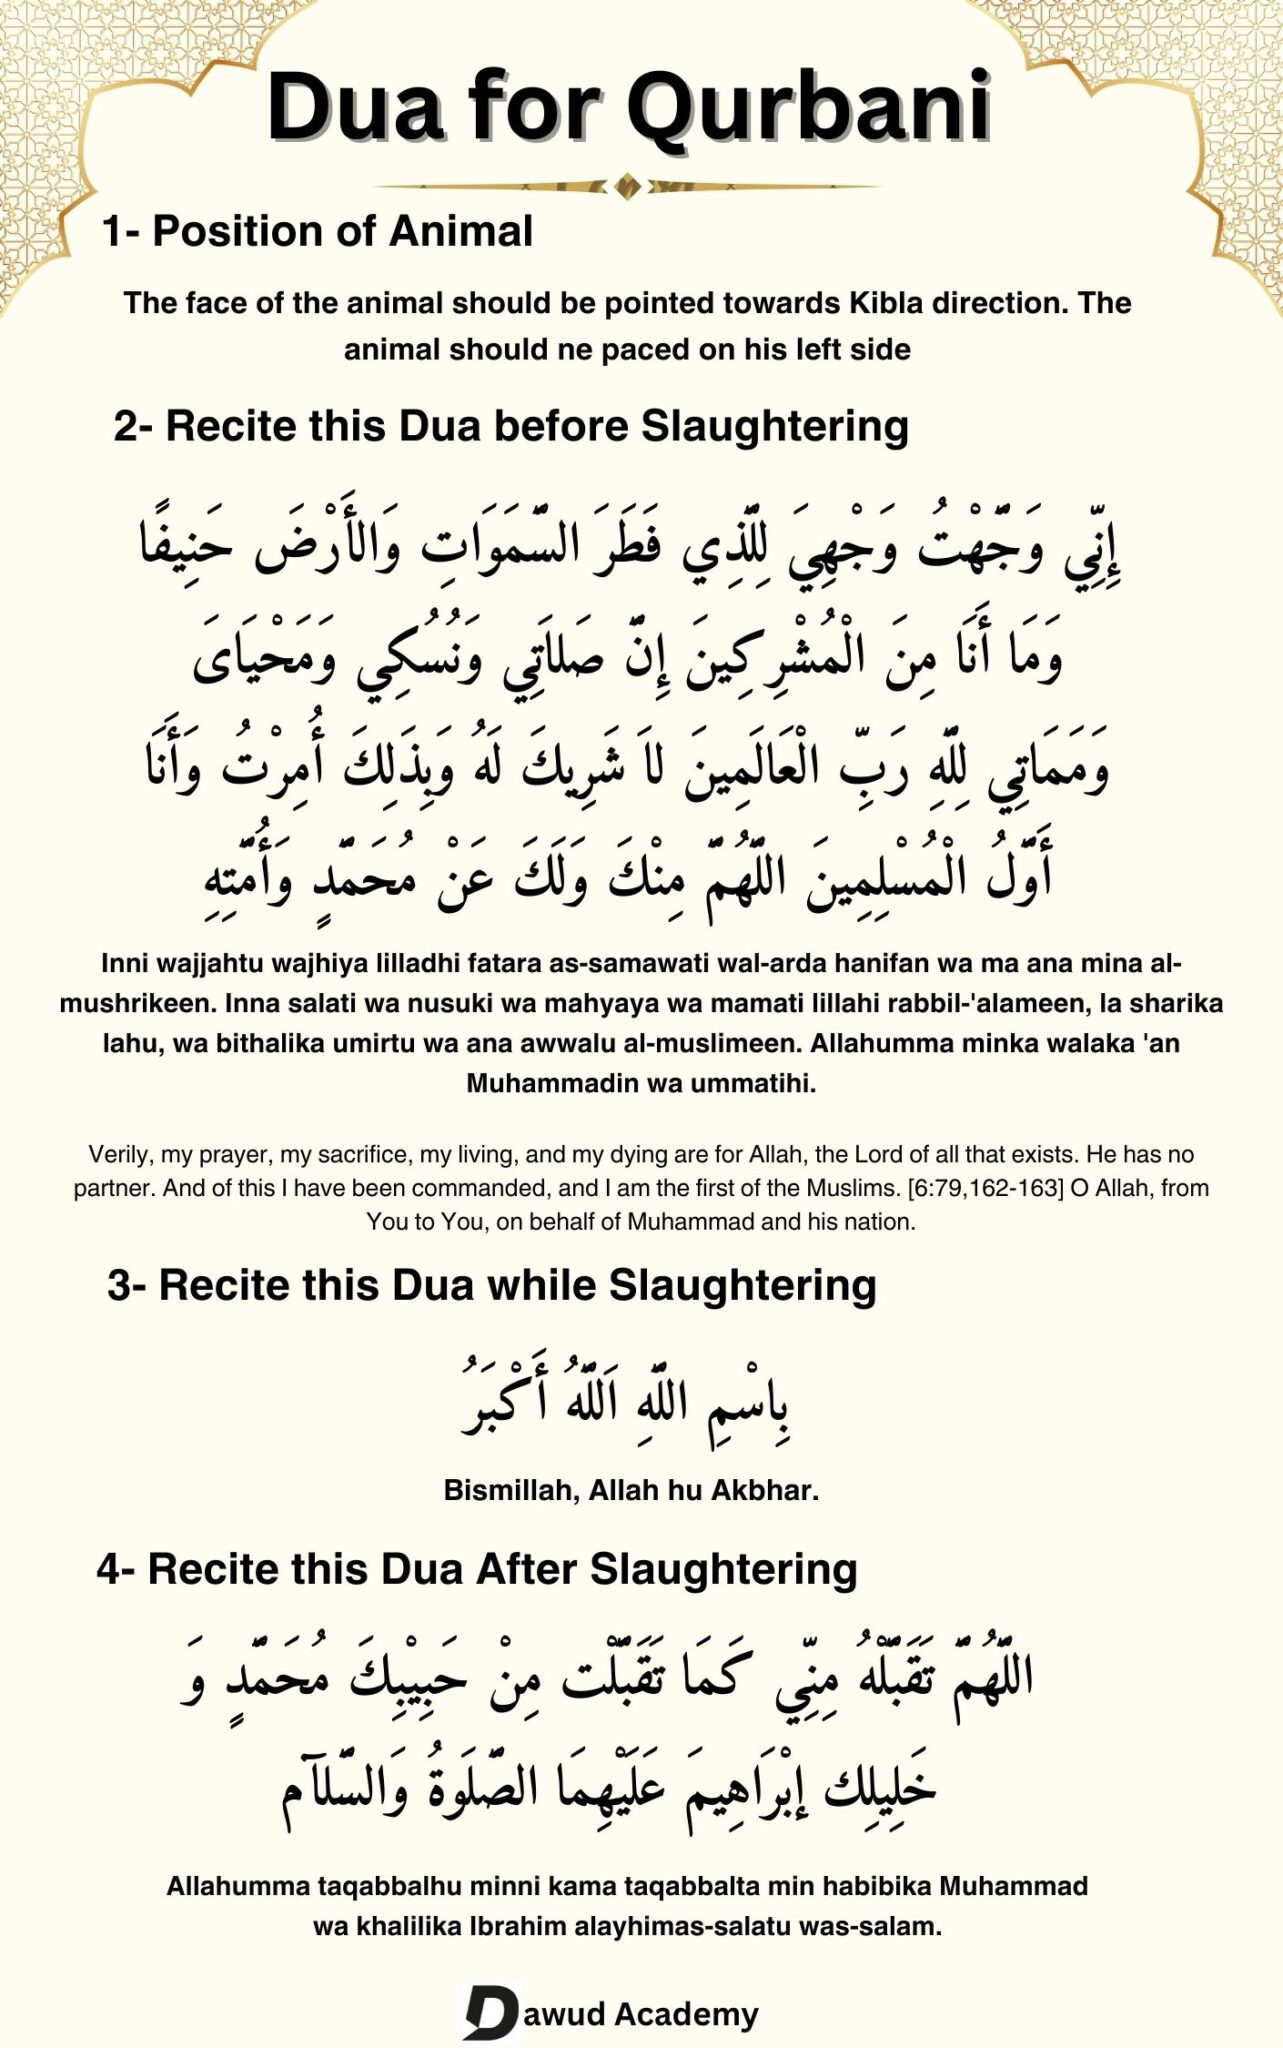 Dua for Qurbani
1- Position of Animal
The face of the animal should be pointed towards Kibla direction. The
animal should ne paced on his left side
2- Recite this Dua before Slaughtering
إِنِّي وَجَّهْتُ وَجْهِيَ لِلَّذِي فَطَرَ السَّمَوَاتِ وَالأَرْضَ حَنِيفًا
وَمَا أَنَا مِنَ الْمُشْرِكِينَ إِنَّ صَلاَتِي وَنُسُكِي وَمَحْيَاىَ
وَمَمَاتِي لِلَّهِ رَبِّ الْعَالَمِينَ لاَ شَرِيكَ لَهُ وَبِذَلِكَ أُمِرْتُ وَأَنَا
أَوَّلُ الْمُسْلِمِينَ اللَّهُمَّ مِنْكَ وَلَكَ عَنْ مُحَمَّدٍ وَأُمَّتِهِ
Inni wajjahtu wajhiya lilladhi fatara as-samawati wal-arda hanifan wa ma ana mina al-
mushrikeen. Inna salati wa nusuki wa mahyaya wa mamati lillahi rabbil-'alameen, la sharika
lahu, wa bithalika umirtu wa ana awwalu al-muslimeen. Allahumma minka walaka 'an
Muhammadin wa ummatihi.
Verily, my prayer, my sacrifice, my living, and my dying are for Allah, the Lord of all that exists. He has no
partner. And of this I have been commanded, and I am the first of the Muslims. [6:79,162-163] O Allah, from
You to You, on behalf of Muhammad and his nation.
3- Recite this Dua while Slaughtering
بِاسْمِ اللَّهِ اَللَّهُ أَكْبَرُ
Bismillah, Allah hu Akbhar.
4- Recite this Dua After Slaughtering
اللَّهُمَّ تَقَبَّلْهُ مِنِّي كَمَا تَقَبَّلْت مِنْ حَبِيْبِكَ مُحَمَّدٍ وَ
خَلِيلِك إبْرَاهِيمَ عَلَيْهِمَا الصَّلَوةُ وَالسَّلَآم
Allahumma taqabbalhu minni kama taqabbalta min habibika Muhammad
wa khalilika Ibrahim alayhimas-salatu was-salam.
Dawud Academy